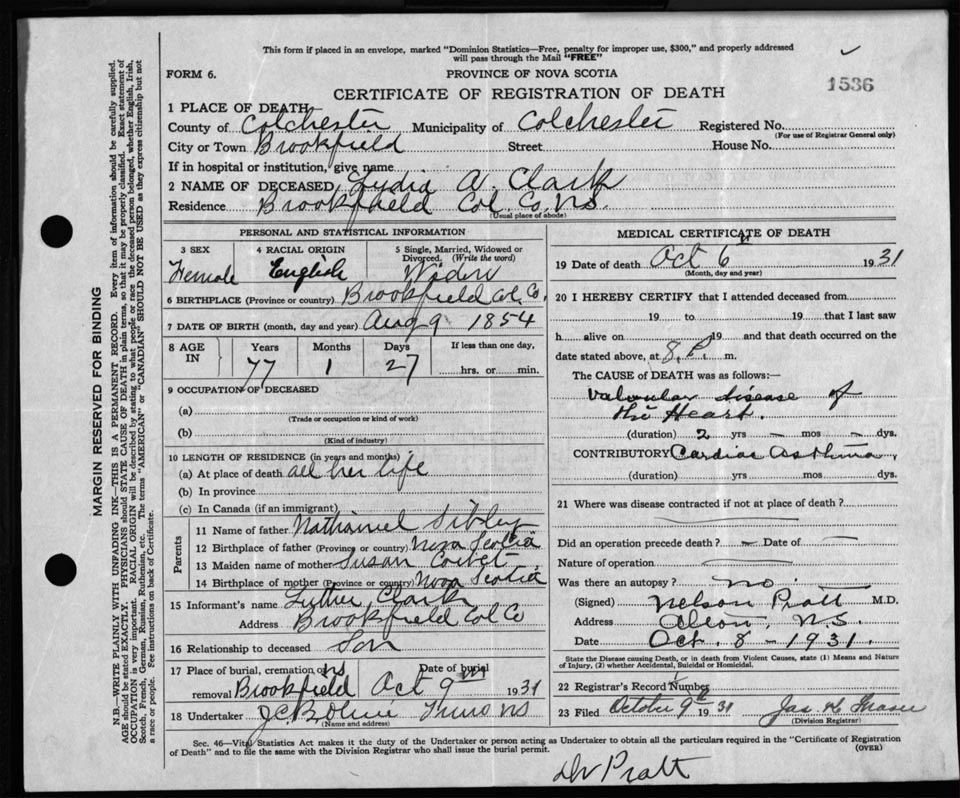 This form if placed in an envelope, marked "Dominion Statistics—Free, penalty for improper use, $300," and properly addressed
will pass through the Mail "FREE"
FORM 6.
PROVINCE OF NOVA SCOTIA
CERTIFICATE OF REGISTRATION OF DEATH
1536
1 PLACE OF DEATH
County of Colchester Municipality of Colchester Registered No.
(For use of Registrar General only)
City or Town Brookfield Street House No.
If in hospital or institution, give name
2 NAME OF DECEASED Lydia A. Clark
Residence Brookfield Col. Co. N.S.
(Usual place of abode)
PERSONAL AND STATISTICAL INFORMATION
3 SEX 4 RACIAL ORIGIN 5 Single, Married, Widowed or
Divorced. (Write the word)
Female English
6 BIRTHPLACE (Province or country) Brookfield Col. Co.
7 DATE OF BIRTH (month, day and year) Aug 9 1854
8 AGE IN Years Months Days If less than one day,
77 1 27 hrs. or min.
9 OCCUPATION OF DECEASED
(a)
(Trade or occupation or kind of work)
(b)
(Kind of industry)
10 LENGTH OF RESIDENCE (in years and months)
(a) At place of death all her life
(b) In province
(c) In Canada (if an immigrant)
Parents
11 Name of father Nathaniel Sibley
12 Birthplace of father (Province or country) Nova Scotia
13 Maiden name of mother Susan
14 Birthplace of mother (Province or country) Nova Scotia
15 Informant's name Luther Clark
Address Brookfield Col Co
16 Relationship to deceased Son
17 Place of burial, cremation or removal Brookfield NS Date of burial Oct 9th 1931
18 Undertaker Truro NS
(Name and address)
MEDICAL CERTIFICATE OF DEATH
19 Date of death Oct 6th 1931
(Month, day and year)
20 I HEREBY CERTIFY that I attended deceased from
19 to 19 that I last saw
h alive on 19 and that death occurred on the
date stated above, at 8. P. m.
The CAUSE of DEATH was as follows:—
Valvular disease of
the Heart.
(duration) 2 yrs – mos – dys.
CONTRIBUTORY Cardiac Asthma,
(duration) yrs mos dys.
21 Where was disease contracted if not at place of death?
Did an operation precede death? – Date of –
Nature of operation
Was there an autopsy? no.
(Signed) Nelson Pratt M.D.
Address N.S.
Date Oct. 8 - 1931.
State the Disease causing Death, or in death from Violent Causes, state (1) Means and Nature
of Injury, (2) whether Accidental, Suicidal or Homicidal.
22 Registrar's Record Number
23 Filed October 9th 1931 Jas K. Fraser
(Division Registrar)
Sec. 46—Vital Statistics Act makes it the duty of the Undertaker or person acting as Undertaker to obtain all the particulars required in the "Certificate of Registration
of Death" and to file the same with the Division Registrar who shall issue the burial permit.
(OVER)
Dr Pratt
MARGIN RESERVED FOR BINDING
N.B.—WRITE PLAINLY WITH UNFADING INK—THIS IS A PERMANENT RECORD. Every item of information should be carefully supplied.
AGE should be stated EXACTLY. PHYSICIANS should STATE CAUSE OF DEATH in plain terms, so that it may be properly classified. Exact statement of
OCCUPATION is very important. RACIAL ORIGIN will be described by stating to what people or race the deceased person belonged, whether English, Irish,
Scotch, French, German, Russian, Ruthenian, etc. The terms "AMERICAN" or "CANADIAN" SHOULD NOT BE USED as they express citizenship but not
a race or people. See instructions on back of Certificate.